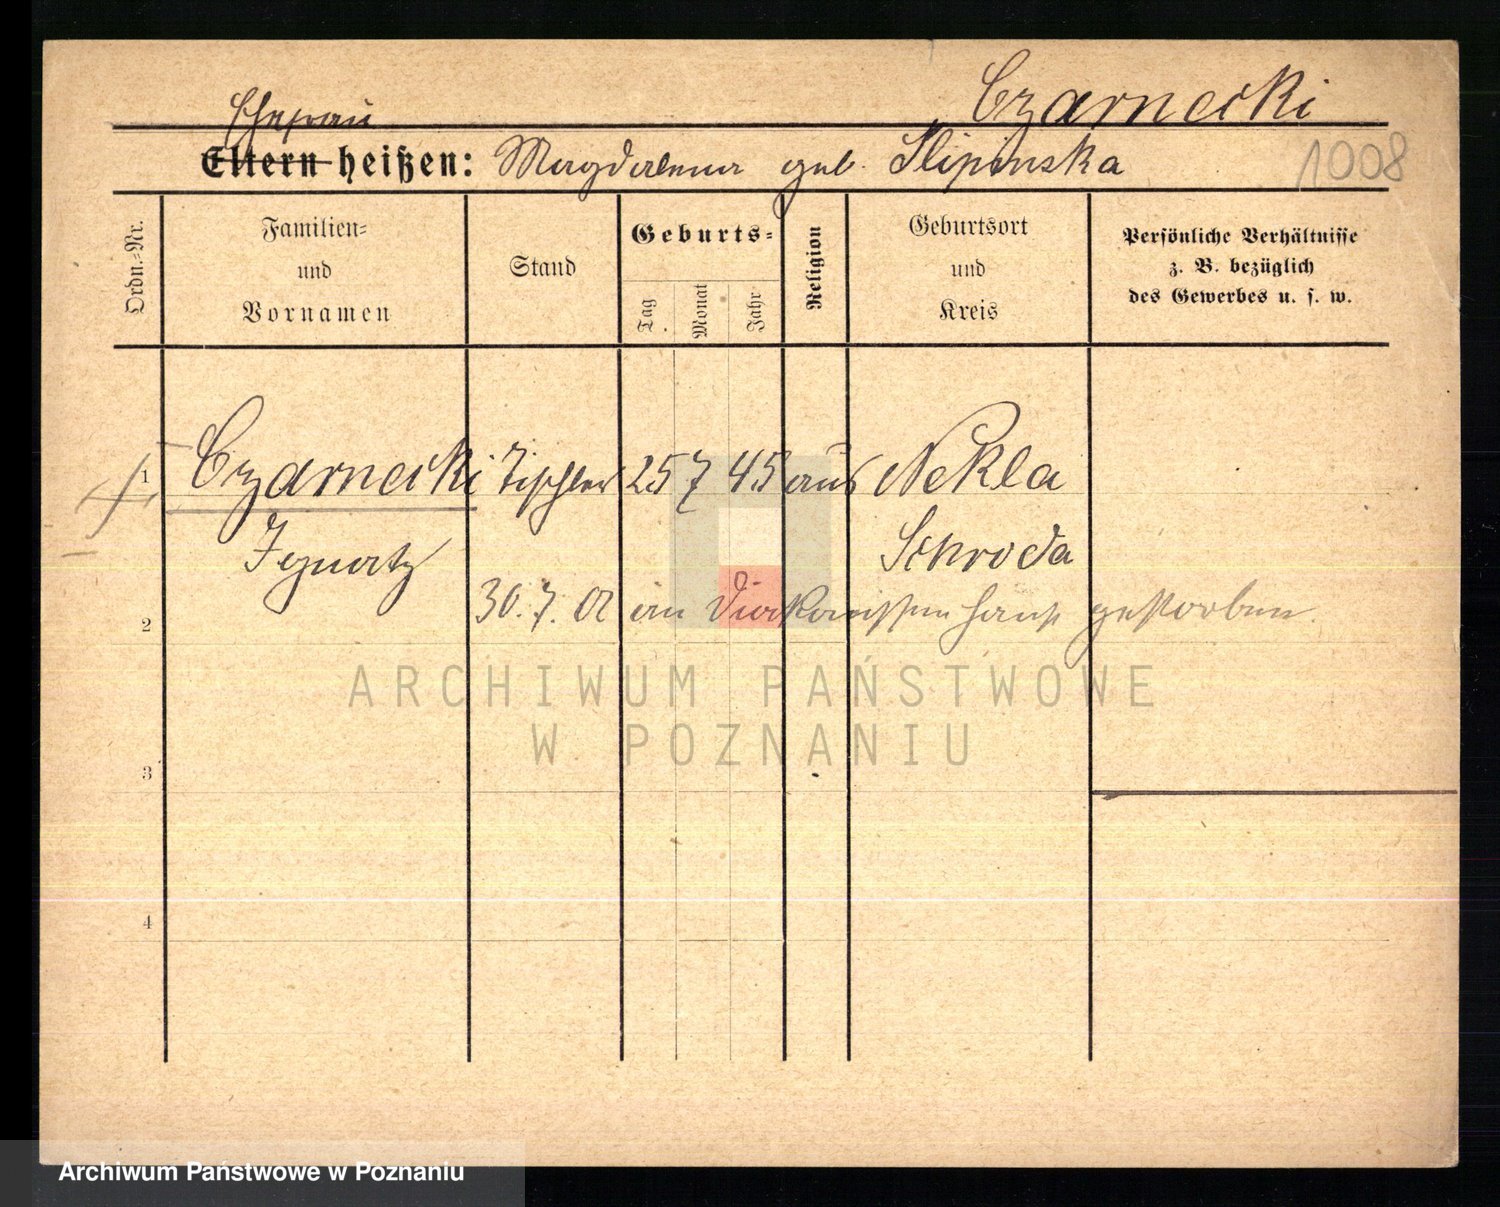 Czarnecki
Ehefrau
Eltern heißen: Magdalena geb. Slipinska
1008
Ordn.=Nr.
Familien=
und
Vornamen
Stand
Geburts=
Tag
Monat
Jahr
Religion
Geburtsort
und
Kreis
Persönliche Verhältnisse
z. B. bezüglich
des Gewerbes u. s. w.
1 Czarnecki Tischler 25 7 45 aus Nekla
Ignatz Schroda
30. 7. 02 im Diakonissenhause gestorben.
2
ARCHIWUM PAŃSTWOWE
W POZNANIU
3
4
Archiwum Państwowe w Poznaniu